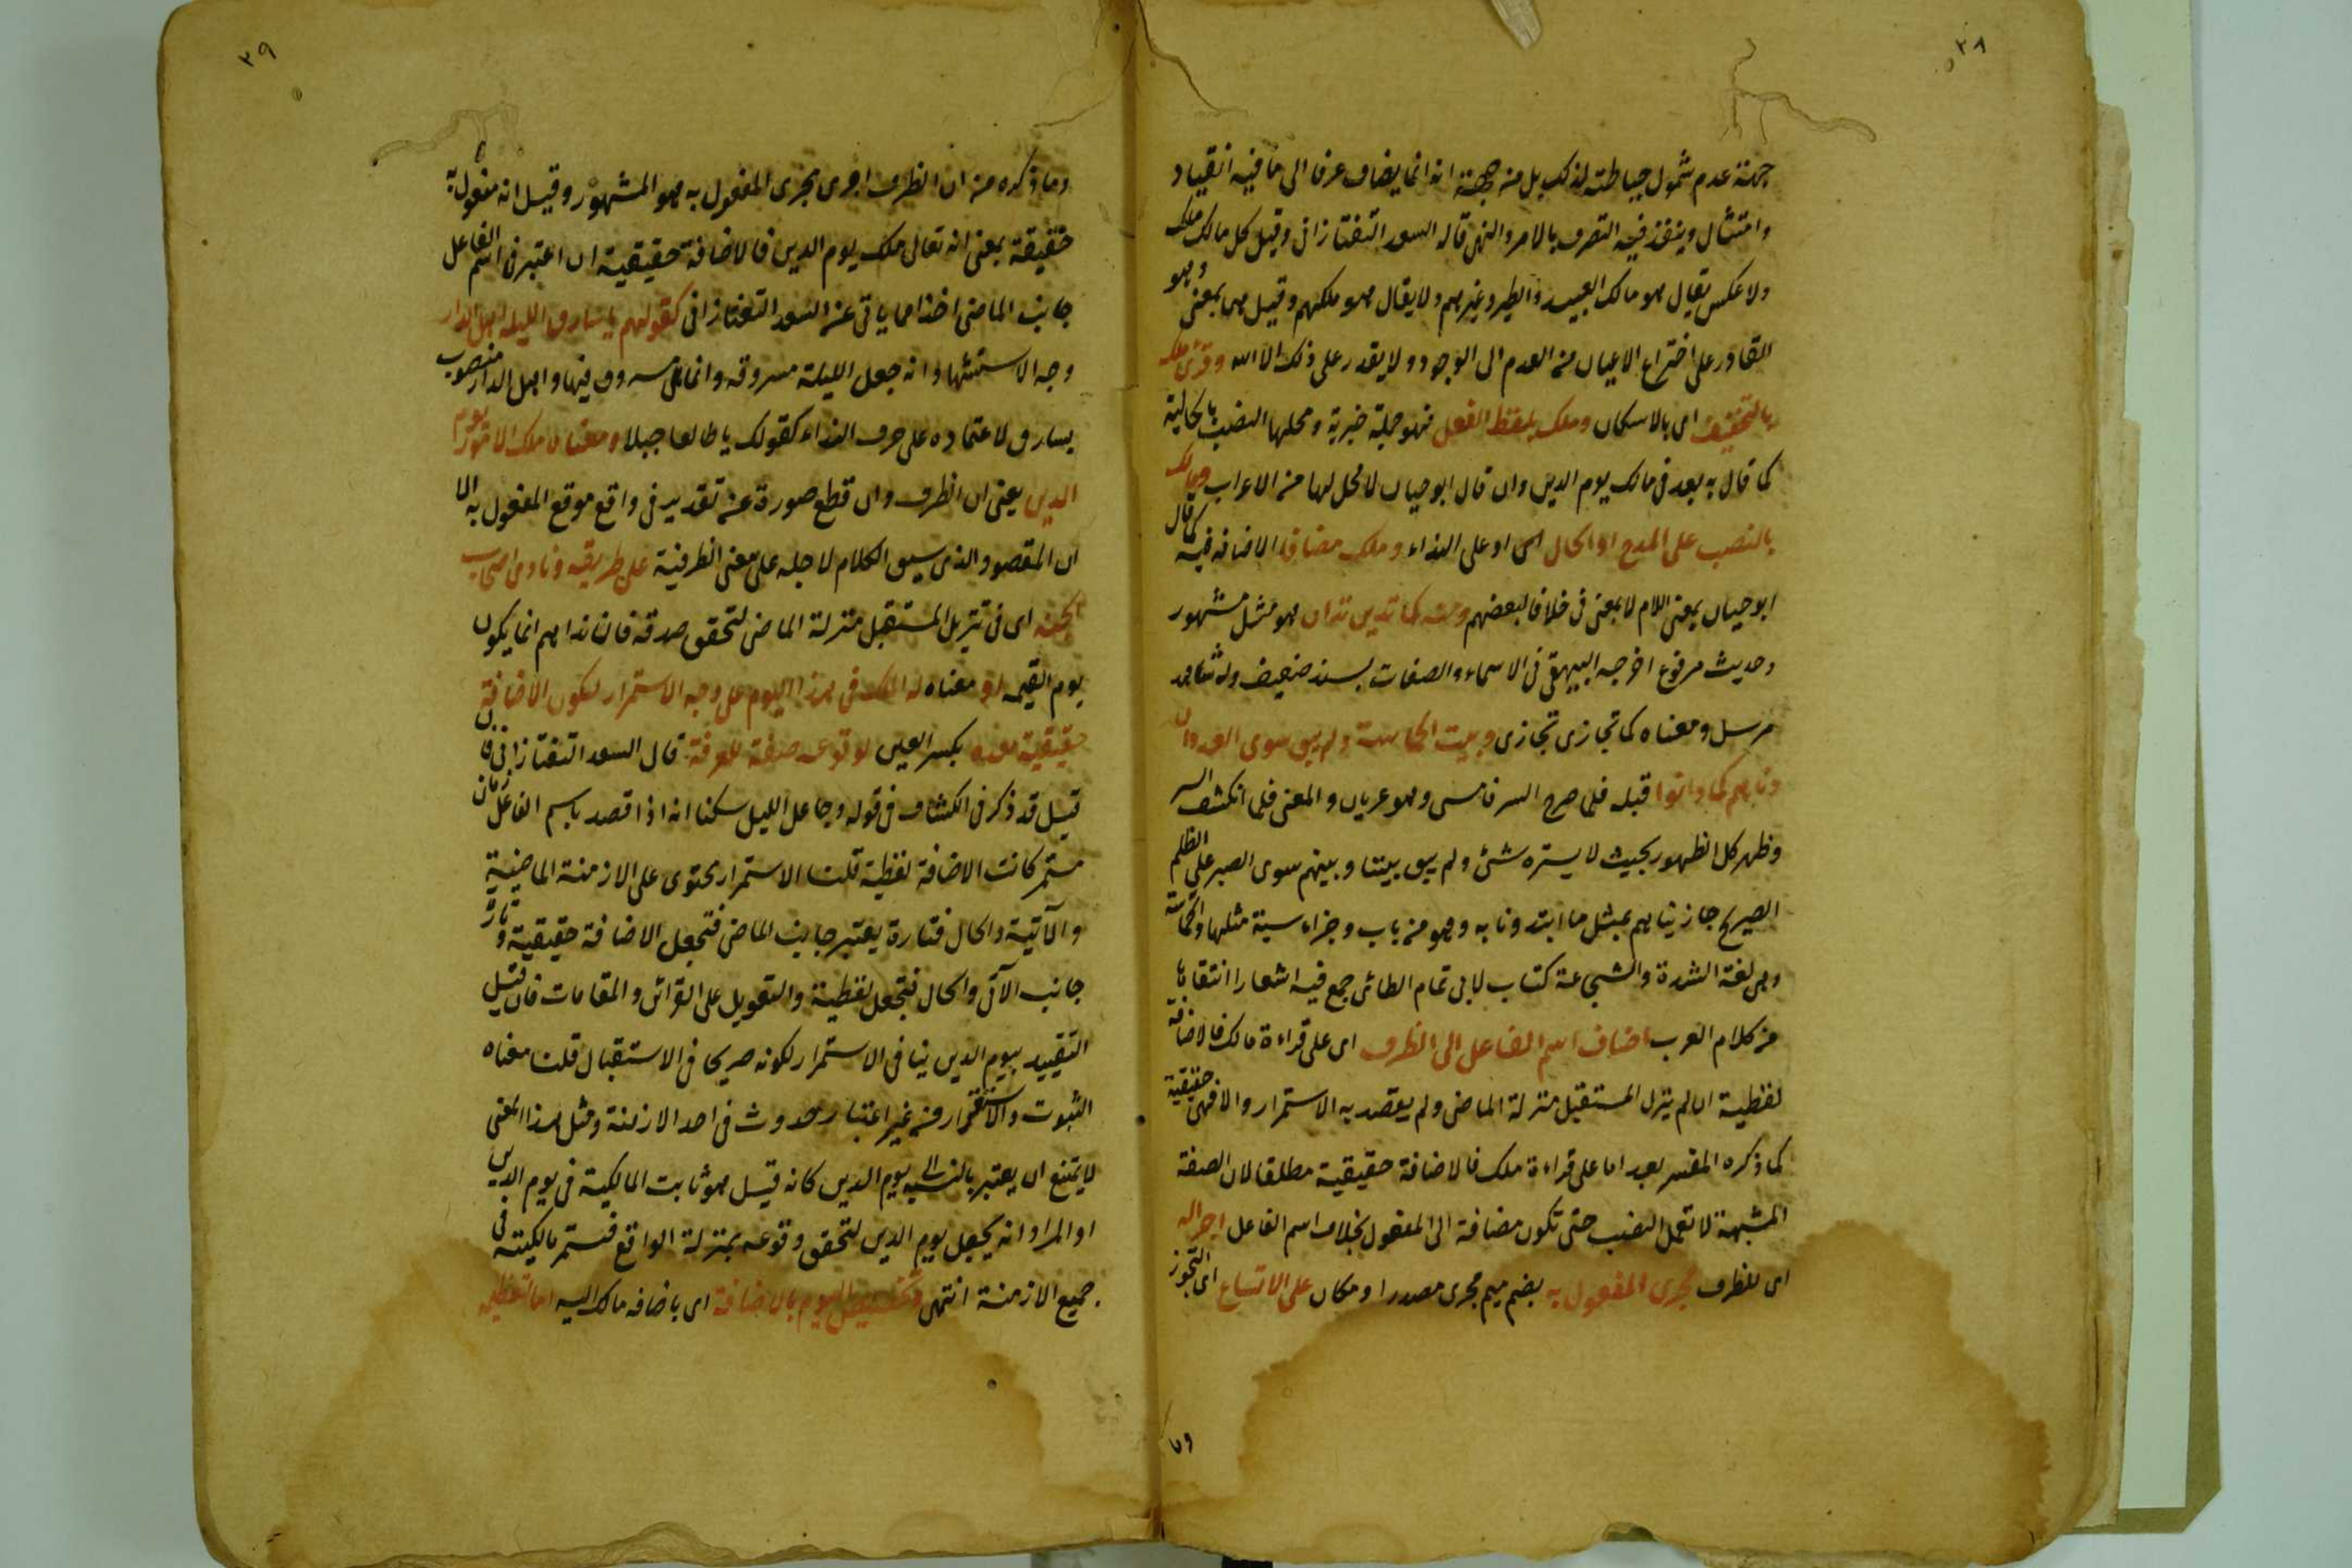 ٣٨
جهة عدم شمول حياطته لذلك بل من جهة انه انما يضاف عرفا الى ما فيه انقياد
وامتثال وينفذ فيه التصرف بالامر والنهى قاله السعد التفتازانى وقيل كل مالك ملك
ولا عكس يقال هو مالك العبيد والطير وغيرهم ولا يقال هو ملكهم وقيل هما بمعنى وهو
القادر على اختراع الاعيان من العدم الى الوجود ولا يقدر على ذلك الا الله وقرئ ملك
بالتخفيف اى بالاسكان وملك بلفظ الفعل فهو جملة خبرية ومحلها النصب بالحالية
كما قال به بعد فى مالك يوم الدين وان قال ابو حيان لا محل لها من الاعراب ومالك
بالنصب على المدح او الحال اى او على النداء وملك مضافا الاضافه فيه كما قال
ابو حيان بمعنى اللام لا بمعنى فى خلافا لبعضهم ومنه كما تدين تدان هو مثل مشهور
وحديث مرفوع اخرجه البيهقى فى الاسماء والصفات بسند ضعيف وله شاهد
مرسل ومعناه كما تجازى تجازى وبيت الحماسة ولم يبق سوى العدوان
دناهم كما دانوا قبله فلما صرح الشر فامسى وهو عريان والمعنى فلما انكشف الشر
وظهر كل الظهور بحيث لا يستره شئ ولم يبق بيننا وبينهم سوى الصبر على الظلم
الصريح جازيناهم بمثل ما ابتدونا به وهو من باب وجزاء سيئة مثلها والحماسة
وهى لغة الشدة والشجاعة كتاب لابى تمام الطائى جمع فيه اشعارا انتقاها
من كلام العرب اضاف اسم الفاعل الى الظرف اى على قراءة مالك فالاضافة
لفظية ان لم ينزل المستقبل منزلة الماضى ولم يقصد به الاستمرار والا فهى حقيقية
كما ذكره المفسر بعد اما على قراءة ملك فالاضافة حقيقية مطلقا لان الصفة
المشبهة لا تعمل النصب حتى تكون مضافة الى المفعول بخلاف اسم الفاعل اجراله
اى للظرف مجرى المفعول به بضم ميم مجرى مصدرا ومكان على الاتساع اى التجوز
٣٩
وما ذكره من ان الظرف اجرى مجرى المفعول به هو المشهور وقيل انه مفعول به
حقيقة بمعنى انه تعالى ملك يوم الدين فالاضافة حقيقية ان اعتبر فى اسم الفاعل
جانب الماضى اخذا مما ياتى عن السعد التفتازانى كقولهم يا سارق الليلة اهل الدار
وجه الاستشهاد انه جعل الليلة مسروقه وانما هى مسروق فيها واهل الدار منصوب
بسارق لاعتماده على حرف النداء كقولك يا طالعا جبلا ومعناه ملك الامور يوم
الدين يعنى ان الظرف وان قطع صورة عن تقدير فى واقع موقع المفعول به الا
ان المقصود الذى سيق الكلام لاجله على معنى الظرفية على طريقه ونادى اصحاب
الجنه اى فى تنزيل المستقبل منزلة الماضى لتحقق صدقه فان نداهم انما يكون
يوم القيمه او معناه له الملك فى هذا اليوم على وجه الاستمرار لتكون الاضافة
حقيقية معده بكسر العين لوقوعه صفة للمعرفة قال السعد التفتازانى فان
قيل قد ذكر فى الكشاف فى قوله وجاعل الليل سكنا انه اذا قصد باسم الفاعل زمان
مستمر كانت الاضافة لفظية قلت الاستمرار يحتوى على الازمنة الماضية
والآتية والحال فتارة يعتبر جانب الماضى فتجعل الاضافة حقيقية وتارة
جانب الآتى والحال فتجعل لفظية والتعويل على القرائن والمقامات فان قيل
التقييد بيوم الدين ينافى الاستمرار لكونه صريحا فى الاستقبال قلت معناه
الثبوت والاستقرار من غير اعتبار حدوث فى احد الازمنة ومثل هذا المعنى
لا يمتنع ان يعتبر بالنسبة الى يوم الدين كانه قيل هو ثابت المالكية فى يوم الدين
او المراد انه يجعل يوم الدين لتحقق وقوعه بمنزلة الواقع فتستمر مالكيته فى
جميع الازمنة انتهى وتخصيص اليوم بالاضافة اى باضافه مالك اليه اما لتعظيمه